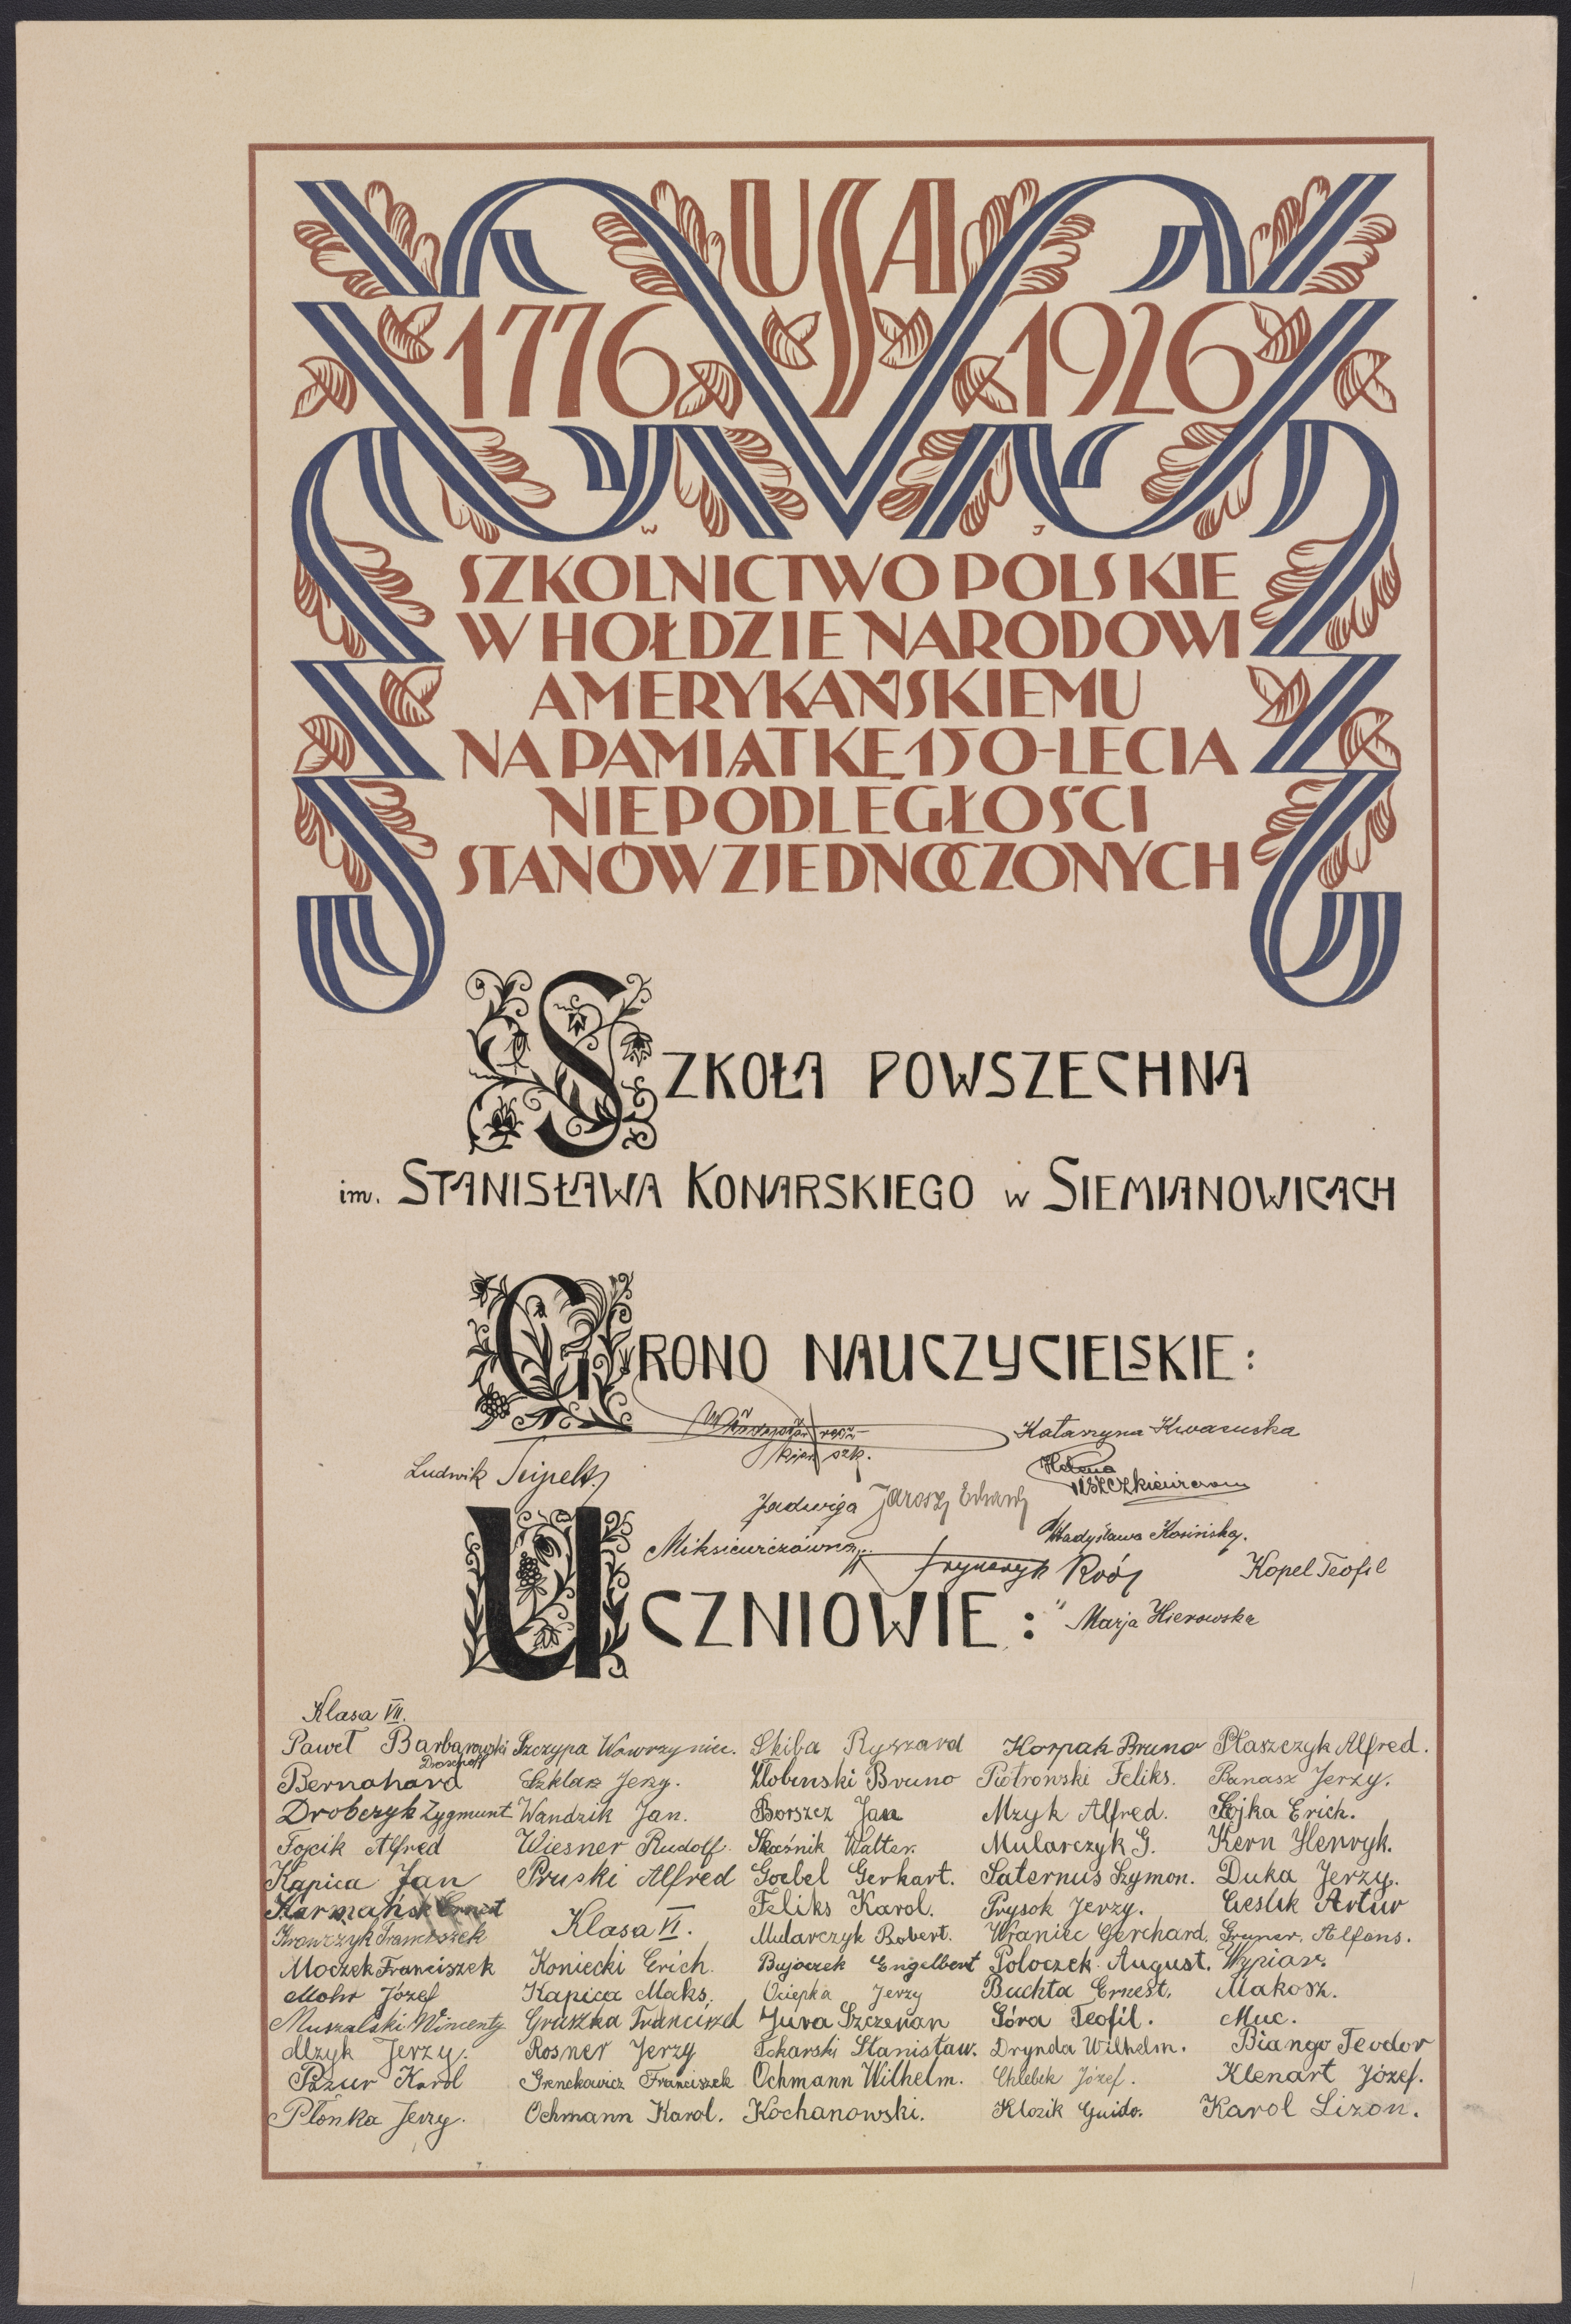 USA
1776 1926
W J
SZKOLNICTWO POLSKIE
W HOŁDZIE NARODOWI
AMERYKAŃSKIEMU
NA PAMIĄTKĘ 150-LECIA
NIEPODLEGŁOŚCI
STANÓW ZJEDNOCZONYCH
SZKOŁA POWSZECHNA
im. STANISŁAWA KONARSKIEGO w SIEMIANOWICACH
GRONO NAUCZYCIELSKIE:
szk.
Katarzyna
Ludwik
Helena
Jadwiga Jarosz
Władysława Kosińska.
Miksiewiczówna
Kopel Teofil
UCZNIOWIE:
Marja Hierowska
Klasa VII.
Paweł Barbarowski Szczypa Wawrzyniec. Skiba Ryszard Korpak Bruno Płaszczyk Alfred.
Bernahard Szklarz Jerzy. Bruno Piotrowski Feliks. Panasz Jerzy.
Drobczyk Zygmunt Wandzik Jan. Borszcz Jan Mzyk Alfred. Sojka Erich.
Fojcik Alfred Wiesner Rudolf. Walter. Mularczyk G. Kern Henryk.
Kapica Jan Pruski Alfred Goebel Gerhart. Saternus Szymon. Duka Jerzy.
Karmański Ernest Feliks Karol. Prysok Jerzy. Cieślik Artur
Klasa VI.
Krawczyk Franciszek Mularczyk Robert. Wraniec Gerchard. Gryner. Alfons.
Moczek Franciszek Koniecki Erich. Bujoczek Engelbert Poloczek August. Wypior.
Mohr Józef Kapica Maks. Ociepka Jerzy Buchta Ernest. Makosz.
Muszalski Wincenty Gruszka Franciszed Jura Szczepan Góra Teofil. Muc.
Mzyk Jerzy. Rosner Jerzy Tokarski Stanisław. Drynda Wilhelm. Biango Teodor
Pazur Karol Franciszek Ochmann Wilhelm. Chlebek Józef. Klenart Józef.
Płonka Jerzy. Ochmann Karol. Kochanowski. Klozik Guido. Karol Lizon.